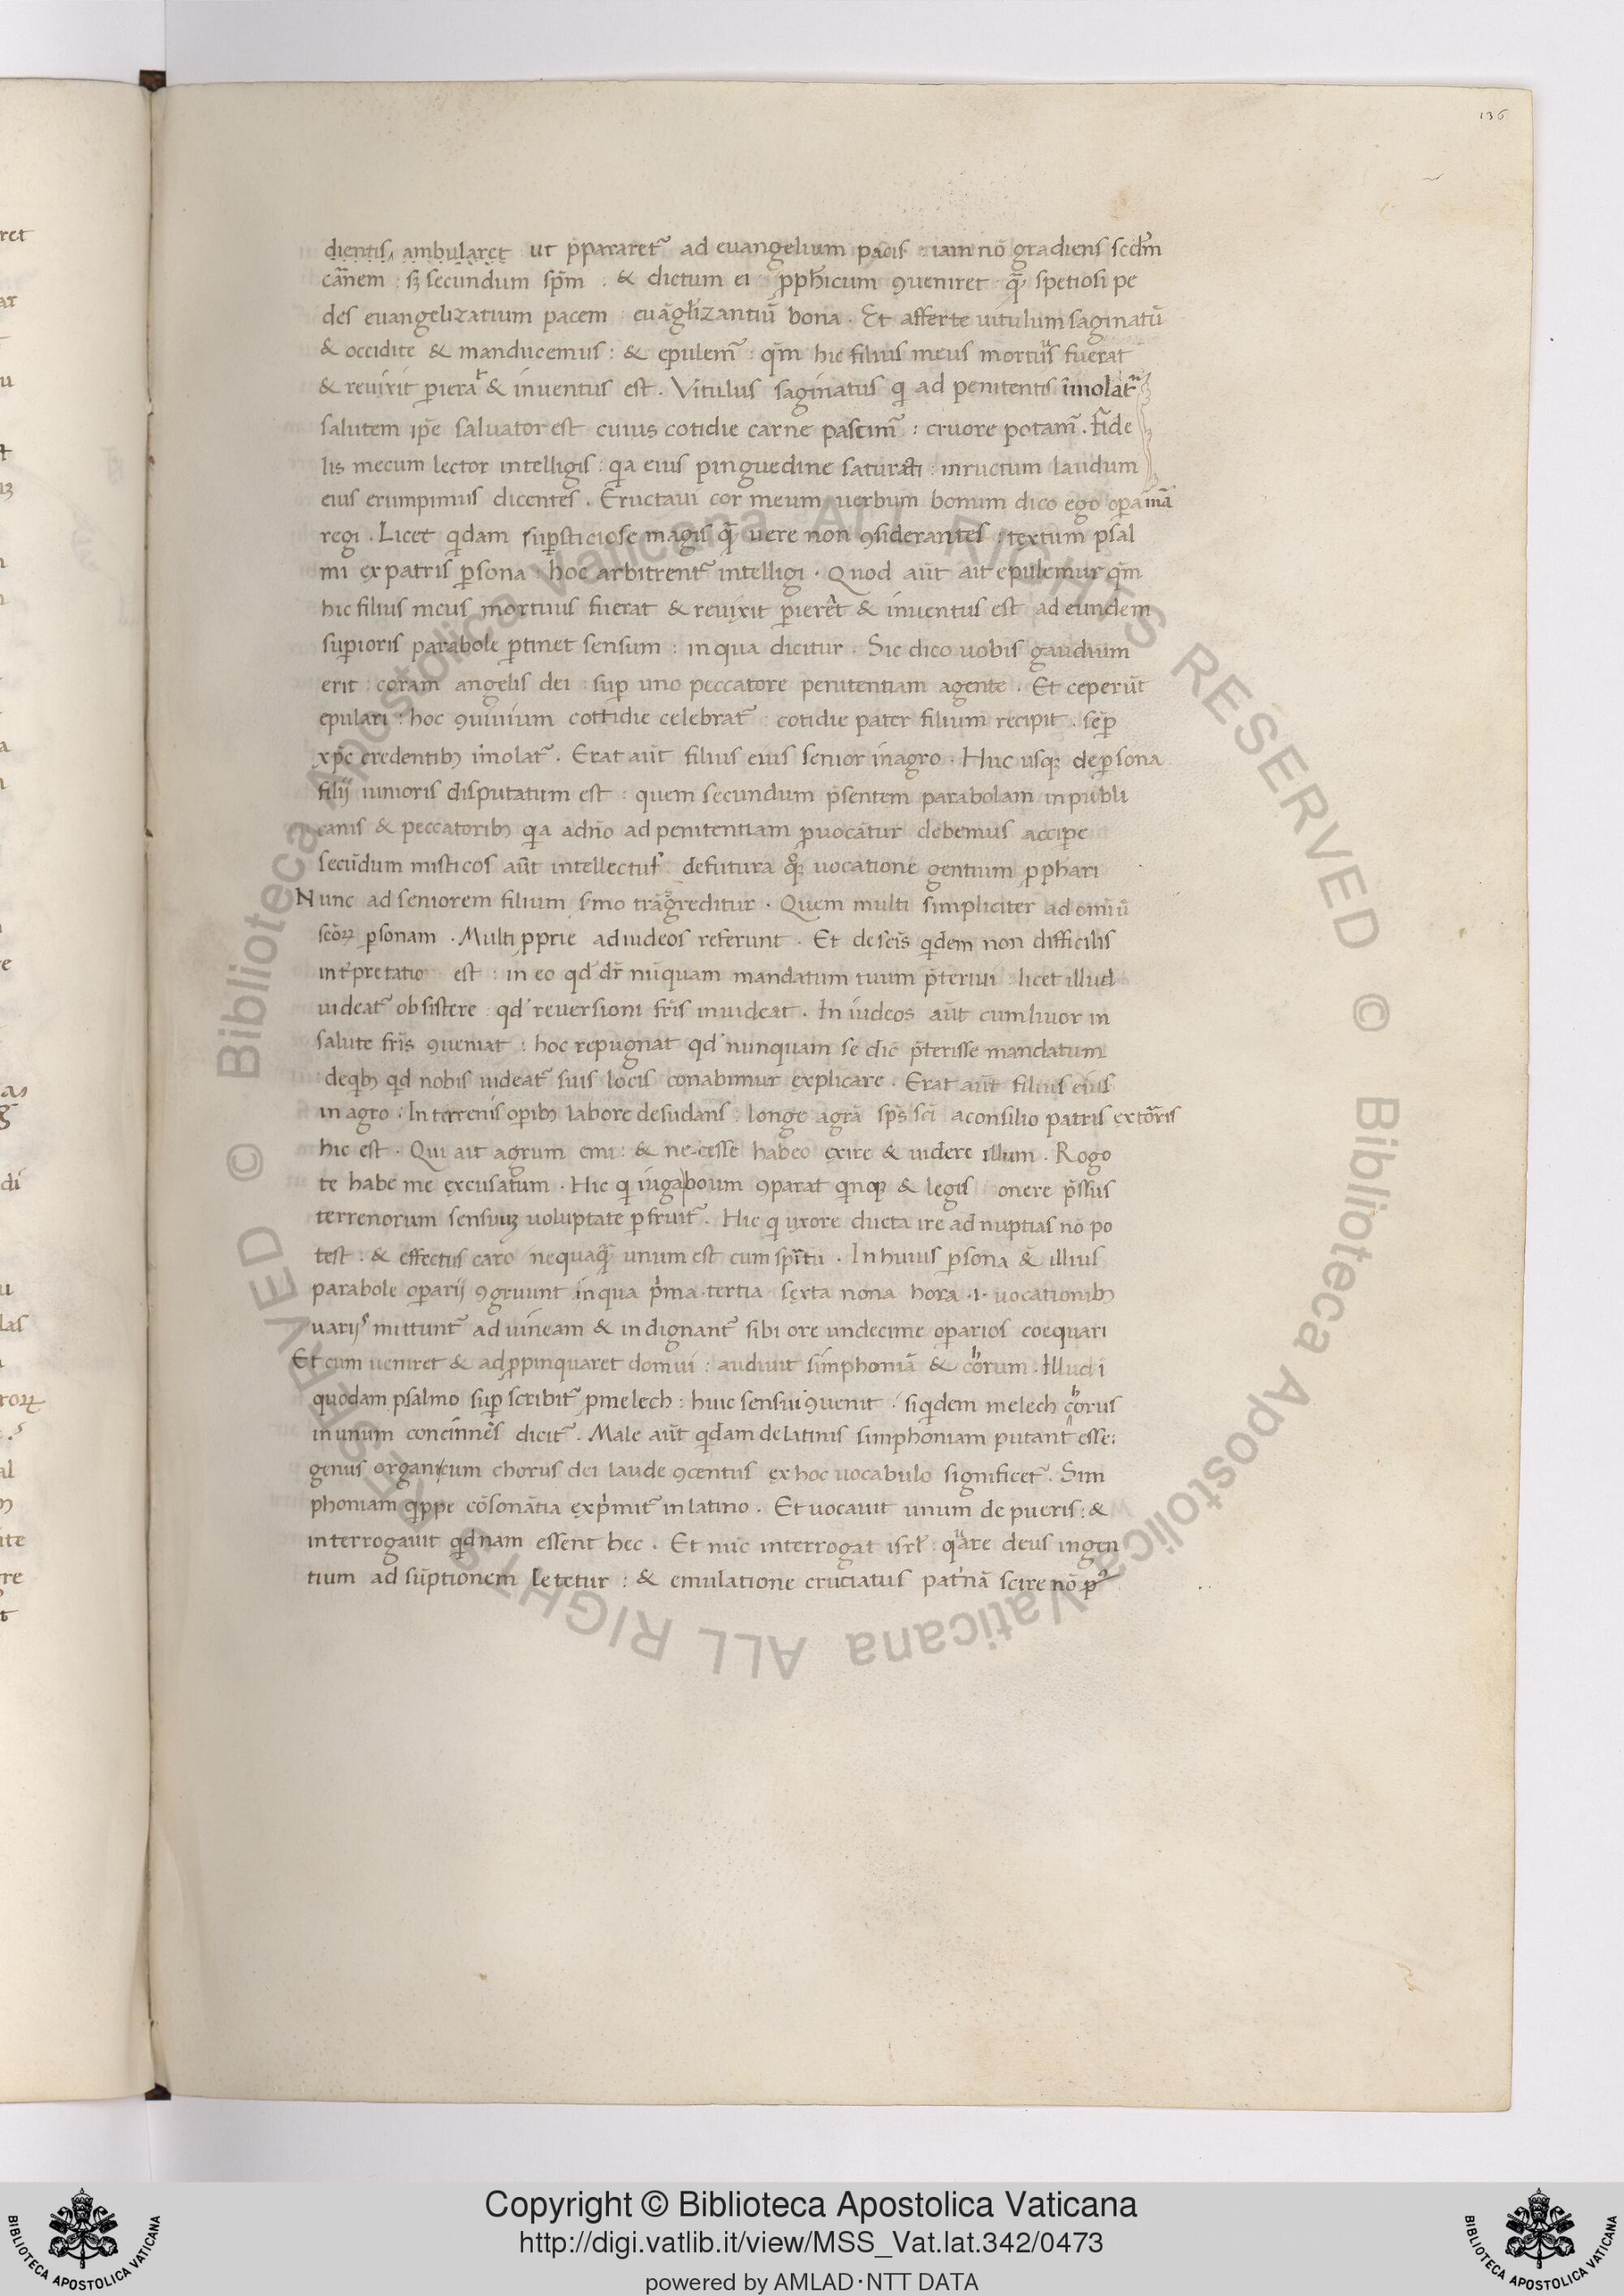 136
dientis, ambularet ut p̄pararet᷒ ad euangelium pacis : iam nō gradiens scdm̄
carnē : sꝫ secundum sp̄m . & dictum ei p̄ph̄icum ꝯueniret q̄ꝫ spetiosi pe
des euangelizatium pacem : euāgłizantiū bona . Et afferte uitulum saginatū
& occidite & manducemus : & epulem᷒ : qm̄ hic filius meus mortuus fuerat
& reuixit pierat & inuentus est . Vitulus saginatus qi ad penitentis īmolat᷒
salutem ip̄e saluator est cuius cotidie carne pascim᷒ : cruore potam᷒ . fide
lis mecum lector intelligis : qa eius pinguedine saturati : inructum laudum
eius erumpimus dicentes . Eructaui cor meum uerbum bonum dico ego opa mā
regi . Licet qidam sup̱sticiose magis q̄ꝫ uere non ꝯsiderantes : textum psal
mi ex patris p̱sona : hoc arbitrent᷒ intelligi . Quod aūt ait epulemur qm̄
hic filius meus mortuus fuerat & reuixit pierat & inuentus est ad eundem
sup̱ioris parabole p̱tinet sensum : in qua dicitur . Sic dico uobis gaudium
erit : coram angelis dei : sup̱ uno peccatore penitentiam agente . Et ceperūt
epulari : hoc ꝯuiuium cottidie celebrat᷒ : cotidie pater filium recipit . semp̱
xp̄c credentibꝫ īmolat᷒ . Erat aūt filius eius senior in agro . Huc usqꝫ de p̱sona
filij iunioris disputatum est : quem secundum p̄sentem parabolam in publi
canis & peccatoribꝫ qa a dn̄o ad penitentiam p̱uocātur debemus accipe
secūdum misticos aūt intellectus : de futura qoqꝫ uocatione gentium p̱phari
Nunc ad seniorem filium s̄mo trāsgreditur . Quem multi simpliciter ad om̄iū
scōꝝ p̱sonam . Multi p̱prie ad iudeos referunt . Et de scīs qidem non difficilis
int̄pretatio est : in eo qd dr̄ nūquam mandatum tuum p̄teriui : licet illud
uideat᷒ obsistere : qd reuersioni fr̄is inuideat . In iudeos aūt cum liuor in
salute fr̄is ꝯueniat : hoc repugnat qd nunquam se dic̄ p̄terisse mandatum
de qibꝫ qid nobis uideat᷒ suis locis conabimur explicare . Erat aūt filius eius
in agro . In terrenis opibꝫ labore desudans : longe a gr̄a sp̄s scī a consilio patris extorris
hic est . Qui ait agrum emi : & ne-cesse habeo exire & uidere illum . Rogo
te habe me excusatum . Hic qi iuga boum ꝯparat qinqꝫ & legis onere p̄ssus
terrenorum sensuuꝫ uoluptate p̱fruit᷒ . Hic qi uxore ducta ire ad nuptias nō po
test : & effectus caro nequaq̄ꝫ unum est cum sp̄itu . In huius p̱sona & illius
parabole oparij ꝯgruunt in qua p̱ima . tertia sexta nona hora .i. uocationibꝫ
uarijs mittunt᷒ ad uineam & indignant᷒ sibi ore undecime oparios coequari
Et cum ueniret & adp̱pinquaret domui : audiuit simphoniā & chorum . Illud ī
quodam psalmo sup̱scribit᷒ p̱ melech : huic sensui ꝯuenit . siqidem melech chorus
in unum concinnens dicit᷒ . Male aūt qidam de latinis simphoniam putant esse
genus organicum chorus dei laude ꝯcentus ex hoc uocabulo significet᷒ . Sim
phoniam qippe cōsonātia exp̱imit᷒ in latino . Et uocauit unum de pueris : &
interrogauit qidnam essent hec . Et nūc interrogat isrł : quare deus in gen
tium adsūptionem letetur : & emulatione cruciatus pat̄nā scire nō p̱ᵗ
Copyright © Biblioteca Apostolica Vaticana
http://digi.vatlib.it/view/MSS_Vat.lat.342/0473
powered by AMLAD·NTT DATA
BIBLIOTECA APOSTOLICA VATICANA
BIBLIOTECA APOSTOLICA VATICANA
© Biblioteca Apostolica Vaticana ALL RIGHTS RESERVED © Biblioteca Apostolica Vaticana ALL RIGHTS RESERVED